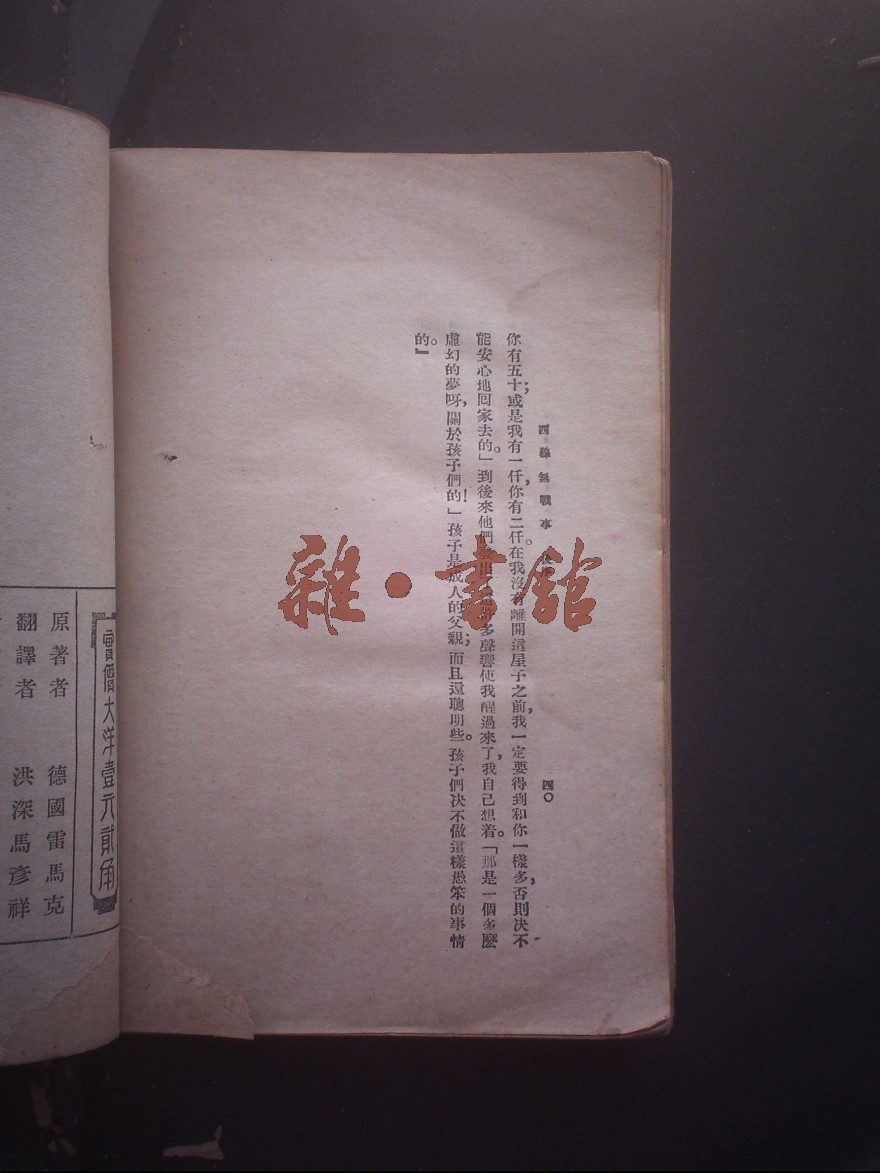 西線無戰事 後
四〇
你有五十；或是我有一仟，你有二仟。在我沒有離開這屋子之前，我一定要得到和你一樣多，否則决不
能安心地回家去的。」到後來他們 出 許多聲響使我醒過來了，我自己想着。「那是一個多麼
虛幻的夢呀，關於孩子們的！」孩子是成人的父親；而且還聰明些。孩子們决不做這樣愚笨的事情
的。』
雜·書館
實價大洋壹元貳角
原著者 德國雷馬克
翻譯者 洪深馬彥祥